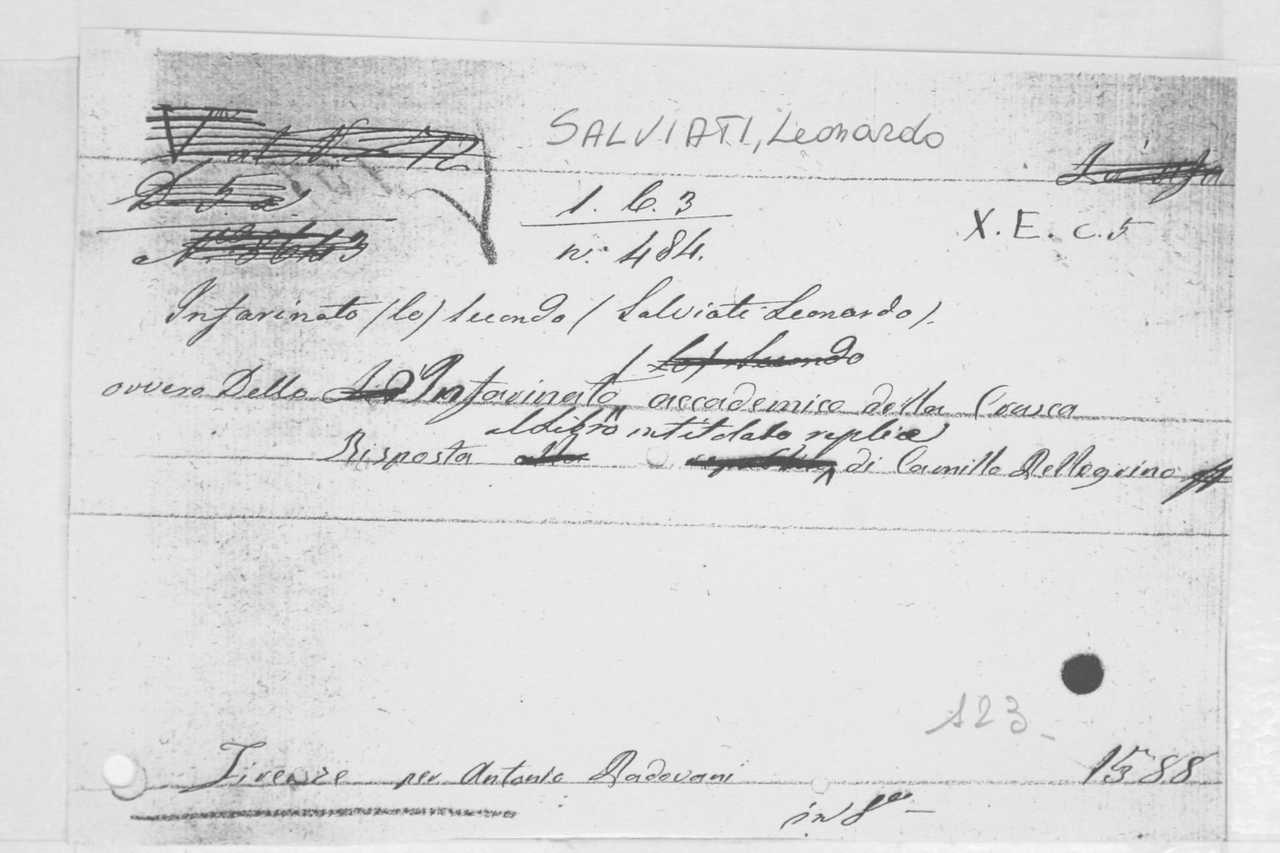 SALVIATI, Leonardo
1. b. 3
X. E. c. 5
n.° 484.
Infarinato (lo) secondo (Salviati Leonardo).
(lo) secondo
ovvero Dello Infarinato accademico della Crusca
al libro intitolato replica
Risposta di Camillo Pellegrino
123
Firenze per Antonio Padovani 1588
in 8°